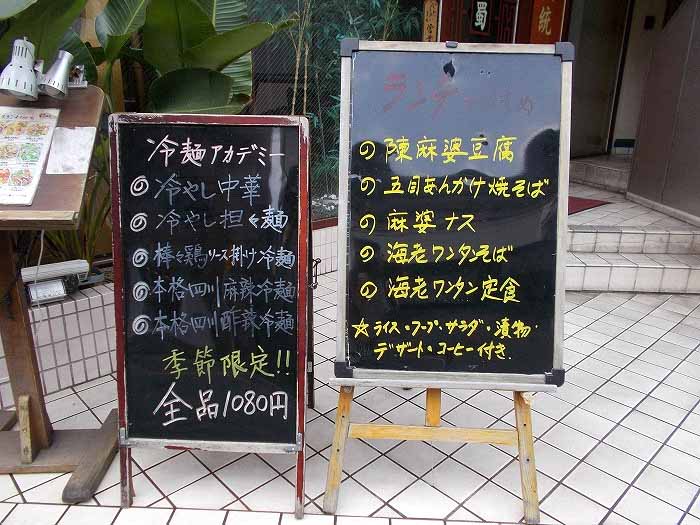 冷麺アカデミー
◎冷やし中華
◎冷やし担々麺
◎棒々鶏ソース掛け冷麺
◎本格四川麻辣冷麺
◎本格四川酢辣冷麺
季節限定!!
全品1080円
ランチ
◎陳麻婆豆腐
◎五目あんかけ焼そば
◎麻婆ナス
◎海老ワンタンそば
◎海老ワンタン定食
☆ライス・スープ・サラダ・漬物・
デザート・コーヒー付き
蜀
統